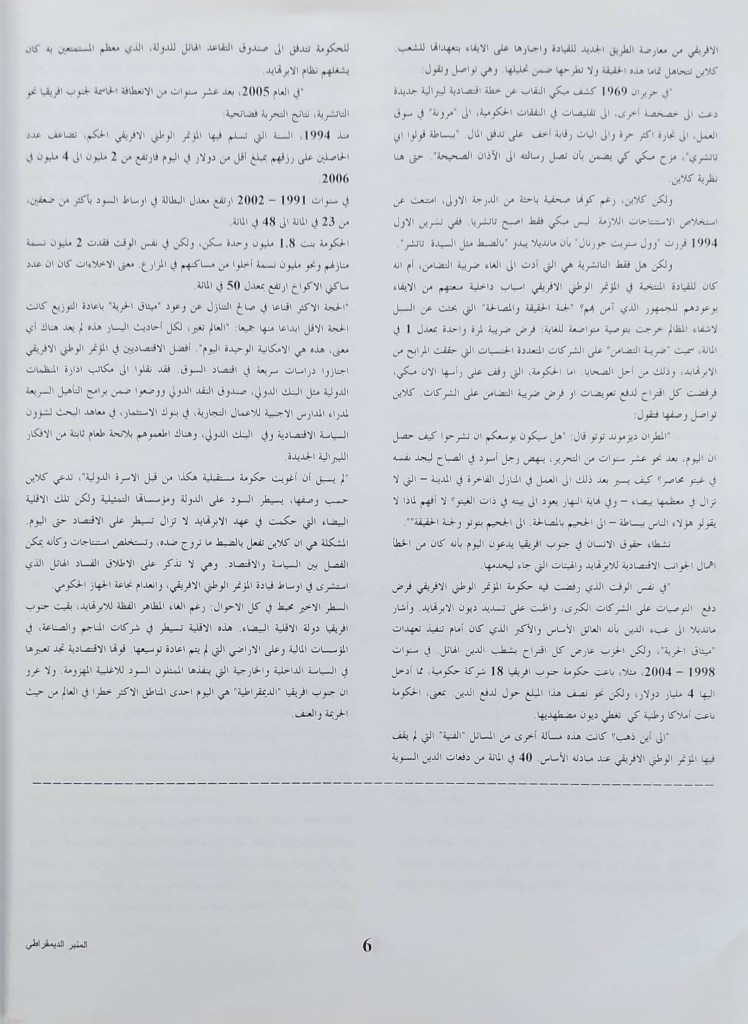 الافريقي من معارضة الطريق الجديد للقيادة واجبارها على الايفاء بتعهداتها للشعب.
كلاين تتجاهل تماما هذه الحقيقة ولا تطرحها ضمن تحليلها. وهي تواصل وتقول:
"في حزيران 1969 كشف مبكي النقاب عن خطة اقتصادية ليبرالية جديدة
دعت الى خصخصة أخرى، الى تقليصات في النفقات الحكومية، الى "مرونة" في سوق
العمل، الى تجارة اكثر حرة والى اليات رقابة أخف على تدفق المال. "ببساطة قولوا اني
تاتشري"، مزح مبكي كي يضمن بأن تصل رسالته الى الآذان الصحيحة". حتى هنا
نظرية كلاين.
ولكن كلاين، رغم كونها صحفية باحثة من الدرجة الاولى، امتنعت عن
استخلاص الاستنتاجات اللازمة. ليس مبكي فقط اصبح تاتشريا. ففي تشرين الاول
1994 قررت "وول ستريت جورنال" بأن مانديلا يبدو "بالضبط مثل السيدة تاتشر".
ولكن هل فقط التاتشرية هي التي أدت الى الغاء ضريبة التضامن، أم انه
كان للقيادة المنتخبة في المؤتمر الوطني الافريقي اسباب داخلية منعتهم من الايفاء
بوعودهم للجمهور الذي آمن بهم؟ "لجنة الحقيقة والمصالحة" التي بحثت عن السبل
لاشفاء المظالم خرجت بتوصية متواضعة للغاية: فرض ضريبة لمرة واحدة بمعدل 1 في
المائة، سميت "ضريبة التضامن" على الشركات المتعددة الجنسيات التي حققت المرابح من
الابرتهايد، وذلك من أجل الضحايا. اما الحكومة، التي وقف على رأسها الان مبكي،
فرفضت كل اقتراح لدفع تعويضات او فرض ضريبة التضامن على الشركات. كلاين
تواصل وصفها فتقول:
"المطران ديزموند توتو قال: "هل سيكون بوسعكم ان تشرحوا كيف حصل
ان اليوم، بعد نحو عشر سنوات من التحرير، ينهض رجل أسود في الصباح ليجد نفسه
في غيتو محاصر؟ كيف يسير بعد ذلك الى العمل في المنازل الفاخرة في المدينة – التي لا
تزال في معظمها بيضاء – وفي نهاية النهار يعود الى بيته في ذات الغيتو؟ لا أفهم لماذا لا
يقولو هؤلاء الناس ببساطة – الى الجحيم بالمصالحة. الى الجحيم بتوتو ولجنة الحقيقة"".
نشطاء حقوق الانسان في جنوب افريقيا يدعون اليوم بأنه كان من الخطأ
اهمال الجوانب الاقتصادية للابرتهايد والهيئات التي جاء ليخدمها.
"في نفس الوقت الذي رفضت فيه حكومة المؤتمر الوطني الافريقي فرض
دفع التوصيات على الشركات الكبرى، واظبت على تسديد ديون الابرتهايد. وأشار
مانديلا الى عبء الدين بأنه العائق الأساس والأكبر الذي كان أمام تنفيذ تعهدات
"ميثاق الحرية"، ولكن الحزب عارض كل اقتراح بشطب الدين الهائل. في سنوات
1998 – 2004، مثلا، باعت حكومة جنوب افريقيا 18 شركة حكومية، مما أدخل
اليها 4 مليار دولار، ولكن نحو نصف هذا المبلغ حول لدفع الدين. بمعنى، الحكومة
باعت أملاكا وطنية كي تغطي ديون مضطهديها.
"الى أين ذهب؟ كانت هذه مسألة أخرى من المسائل "الفنية" التي لم يقف
فيها المؤتمر الوطني الافريقي عند مبادئه الأساس. 40 في المائة من دفعات الدين السنوية
للحكومة تتدفق الى صندوق التقاعد الهائل للدولة، الذي معظم المستمتعين به كان
يشغلهم نظام الابرتهايد.
"في العام 2005، بعد عشر سنوات من الانعطافة الحاسمة لجنوب افريقيا نحو
التاتشرية، نتائج التجربة فضائحية:
منذ 1994، السنة التي تسلم فيها المؤتمر الوطني الافريقي الحكم، تضاعف عدد
الحاصلين على رزقهم بمبلغ أقل من دولار في اليوم فارتفع من 2 مليون الى 4 مليون في
2006.
في سنوات 1991 – 2002 ارتفع معدل البطالة في اوساط السود بأكثر من ضعفين،
من 23 في المائة الى 48 في المائة.
الحكومة بنت 1.8 مليون وحدة سكن، ولكن في نفس الوقت فقدت 2 مليون نسمة
منازلهم ونحو مليون نسمة أخلوا من مساكنهم في المزارع. معنى الاخلاءات كان ان عدد
ساكني الاكواخ ارتفع بمعدل 50 في المائة.
"الحجة الاكثر اقناعا في صالح التنازل عن وعود "ميثاق الحرية" باعادة التوزيع كانت
الحجة الاقل ابداعا منها جميعا: "العالم تغير، لكل أحاديث اليسار هذه لم يعد هناك أي
معنى، هذه هي الامكانية الوحيدة اليوم". أفضل الاقتصاديين في المؤتمر الوطني الافريقي
اجتازوا دراسات سريعة في اقتصاد السوق. فقد نقلوا الى مكاتب ادارة المنظمات
الدولية مثل البنك الدولي، صندوق النقد الدولي ووضعوا ضمن برامج التأهيل السريعة
لمدراء المدارس الاجنبية للاعمال التجارية، في بنوك الاستثمار، في معاهد البحث لشؤون
السياسة الاقتصادية وفي البنك الدولي، وهناك اطعموهم بلائحة طعام ثابتة من الافكار
الليبرالية الجديدة.
"لم يسبق أن أغويت حكومة مستقبلية هكذا من قبل الاسرة الدولية"، تدعي كلاين
حسب وصفها، يسيطر السود على الدولة ومؤسساتها التمثيلية ولكن تلك الاقلية
البيضاء التي حكمت في عهد الابرتهايد لا تزال تسيطر على الاقتصاد حتى اليوم.
المشكلة هي ان كلاين تفعل بالضبط ما تروج ضده، وتستخلص استنتاجات وكأنه يمكن
الفصل بين السياسة والاقتصاد. وهي لا تذكر على الاطلاق الفساد الهائل الذي
استشرى في اوساط قيادة المؤتمر الوطني الافريقي، وانعدام نجاعة الجهاز الحكومي.
السطر الاخير محبط في كل الاحوال: رغم الغاء المظاهر الفظة للابرتهايد، بقيت جنوب
افريقيا دولة الاقلية البيضاء. هذه الاقلية تسيطر في شركات المناجم والصناعة، في
المؤسسات المالية وعلى الاراضي التي لم يتم اعادة توسيعها. قوتها الاقتصادية تجد تعبيرها
في السياسة الداخلية والخارجية التي ينفذها الممثلون السود للاغلبية المهزومة. ولا غرو
ان جنوب افريقيا "الديمقراطية" هي اليوم احدى المناطق الاكثر خطرا في العالم من حيث
الجريمة والعنف.
6
المنبر الديمقراطي